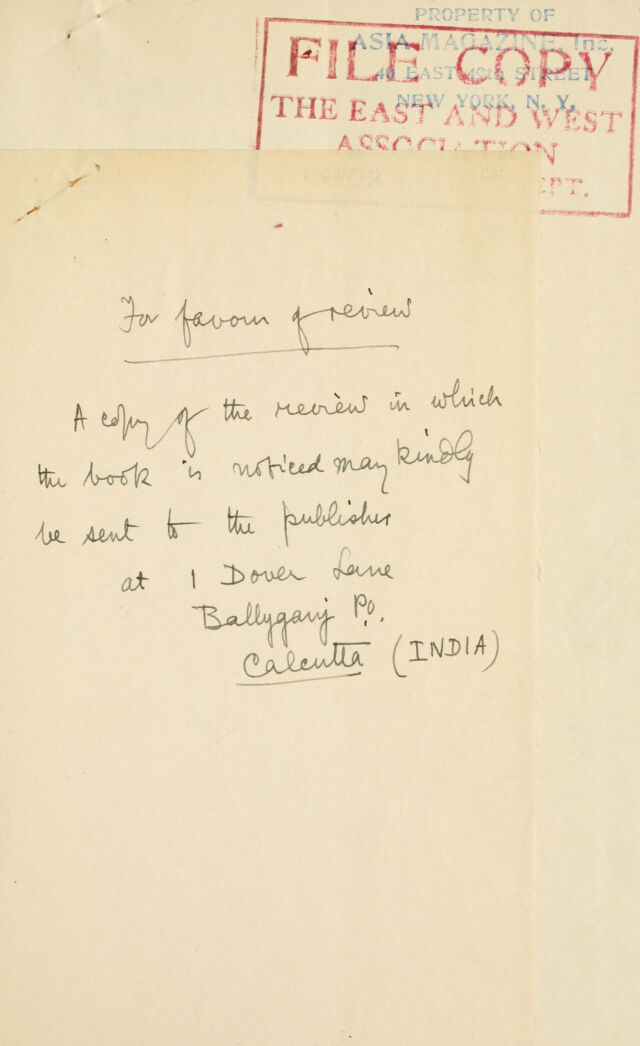 PROPERTY OF
ASIA MAGAZINE, Inc.
40 EAST 49th STREET
NEW YORK, N. Y.
FILE COPY
THE EAST AND WEST
ASSOCIATION
For favour of review
A copy of the review in which
the book is noticed may kindly
be sent to the publisher
at 1 Dover Lane
Ballyganj P.O.
Calcutta (INDIA)